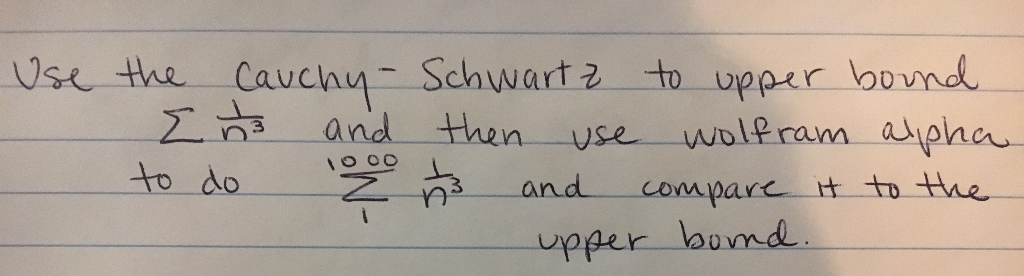 Use the Cauchy-Schwartz to upper bound
Σ 1/n³ and then use wolfram alpha
to do 1000 Σ 1 1/n³ and compare it to the
upper bound.